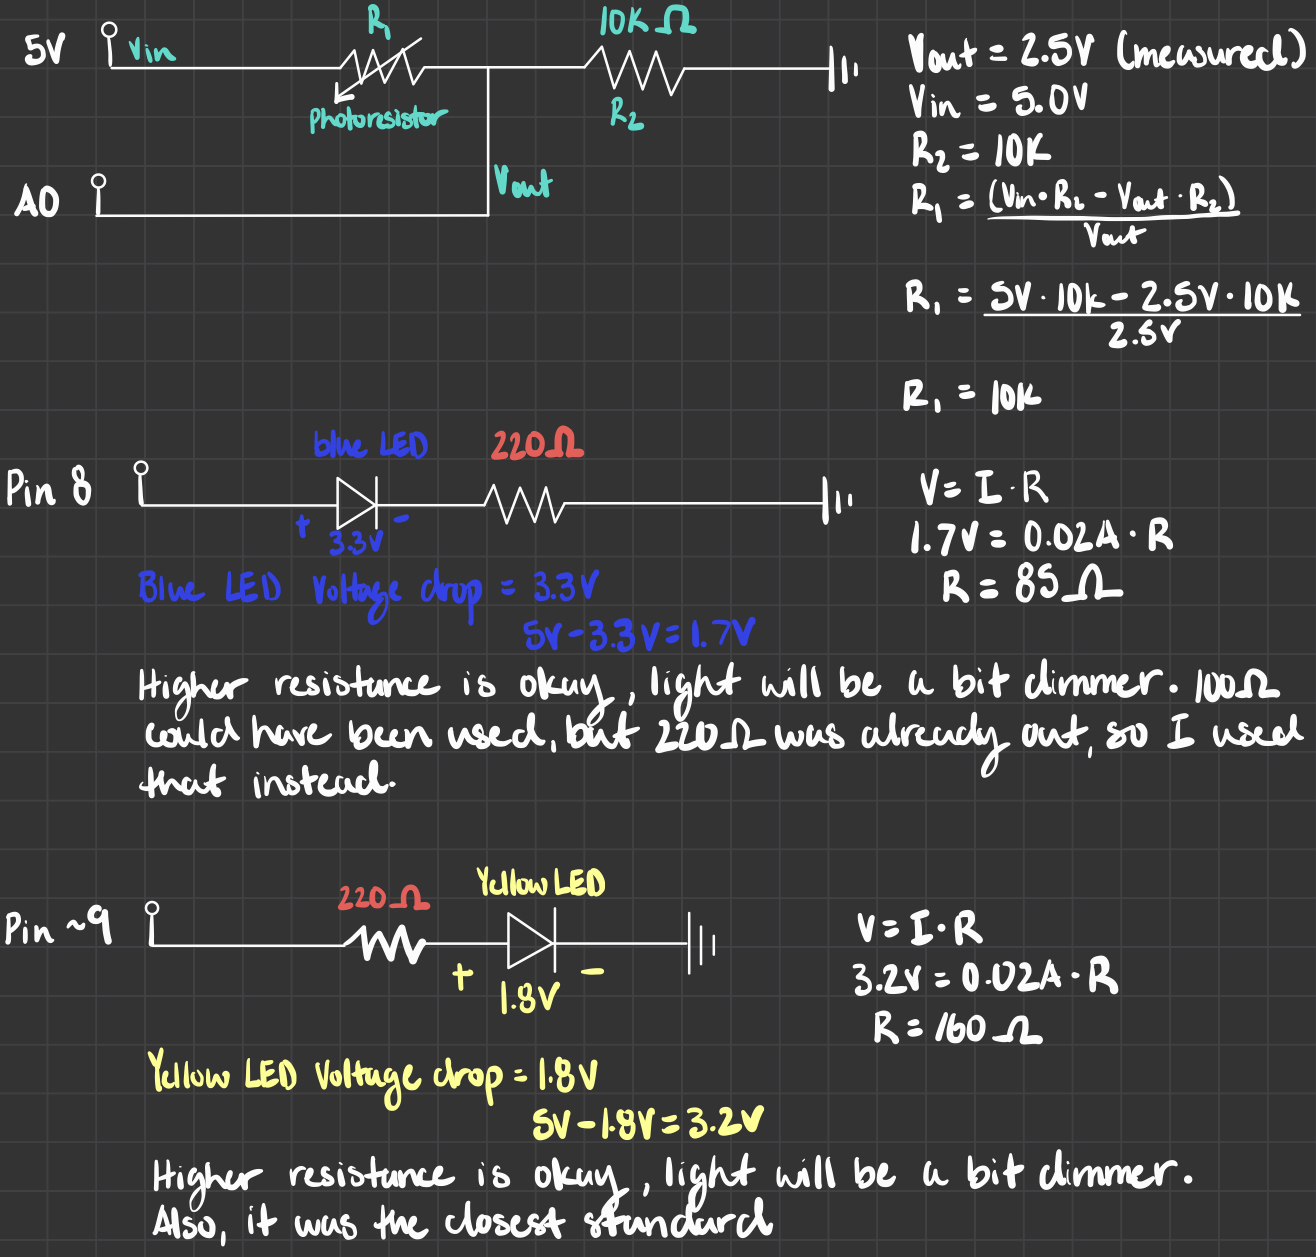 5V
Vin
R₁
Photoresistor
10K Ω
R₂
A0
Vout
Vout = 2.5V (measured)
Vin = 5.0V
R₂ = 10K
R₁ = (Vin · R₂ - Vout · R₂)
Vout
R₁ = 5V · 10k - 2.5V · 10K
2.5V
R₁ = 10K
Pin 8
blue LED
220Ω
+ -
3.3V
Blue LED Voltage drop = 3.3V
5V - 3.3V = 1.7V
V = I · R
1.7V = 0.02A · R
R = 85Ω
Higher resistance is okay, light will be a bit dimmer. 100Ω
could have been used, but 220Ω was already out, so I used
that instead.
Pin ~9
220Ω
Yellow LED
+ -
1.8V
Yellow LED Voltage drop = 1.8V
5V - 1.8V = 3.2V
V = I · R
3.2V = 0.02A · R
R = 160Ω
Higher resistance is okay, light will be a bit dimmer.
Also, it was the closest standard